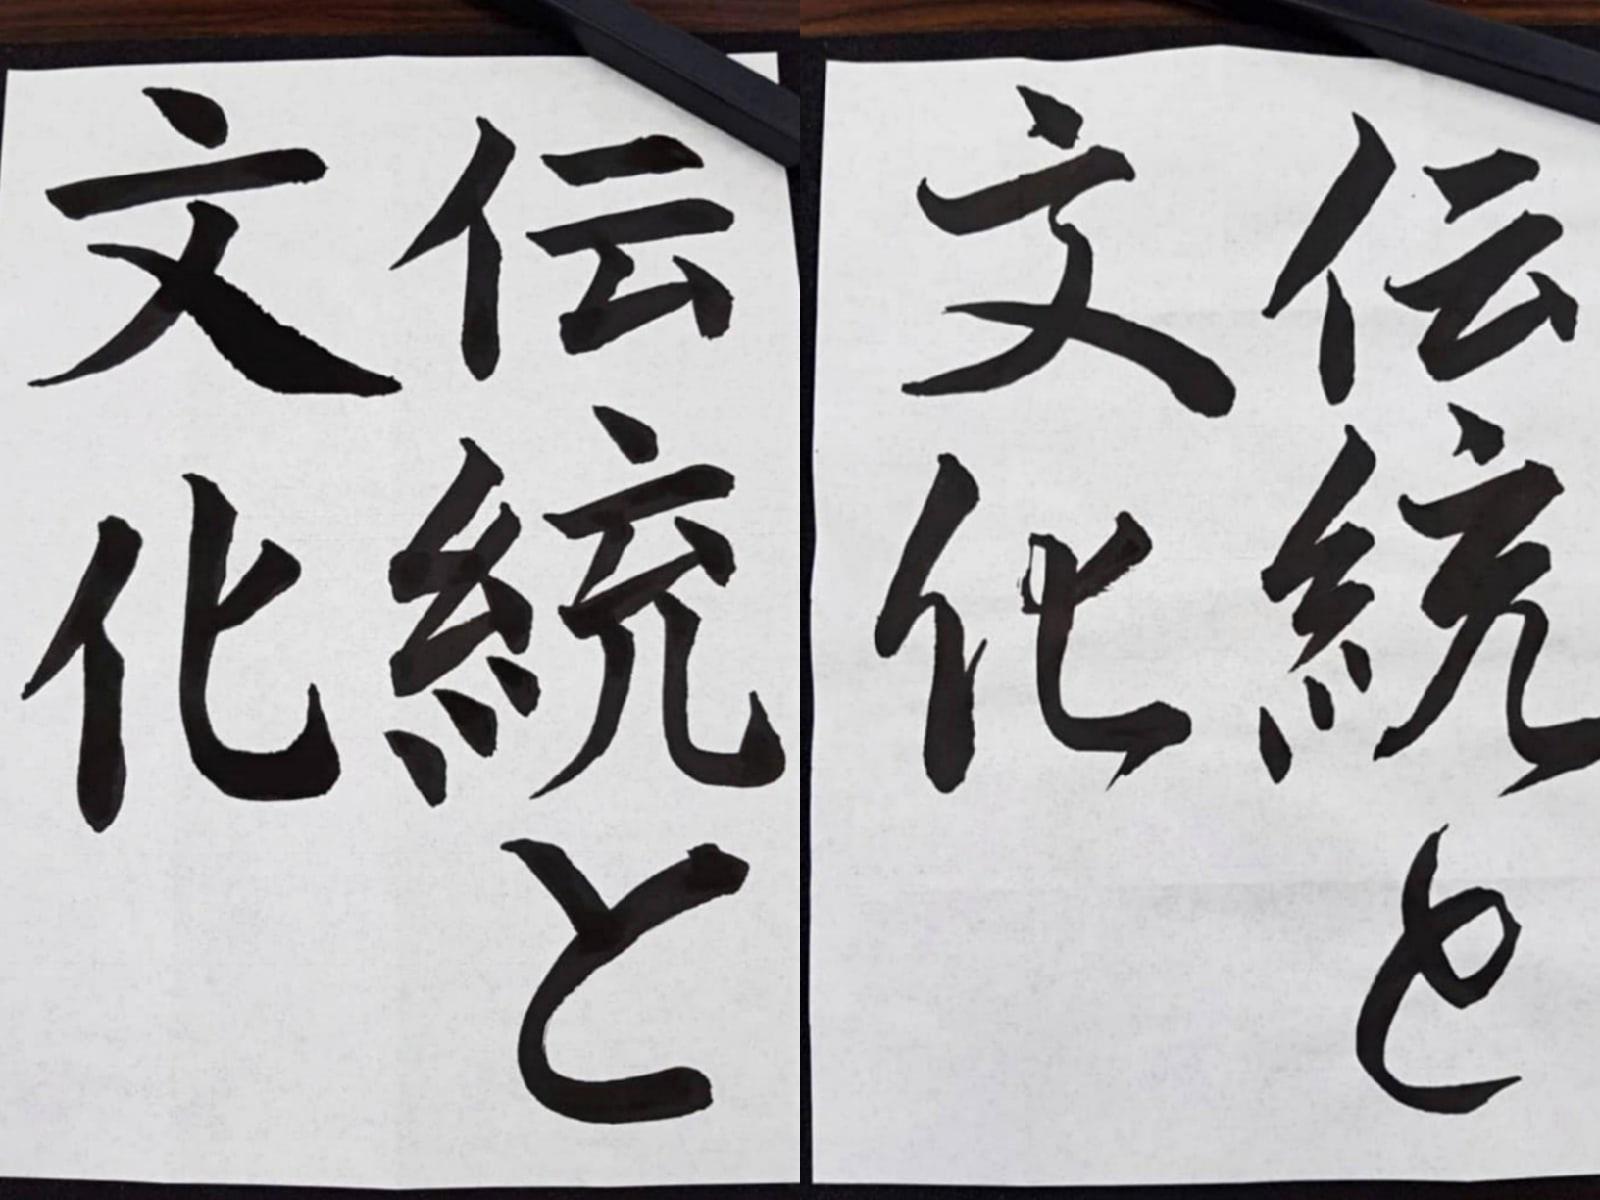 伝統と
文化
伝統と
文化